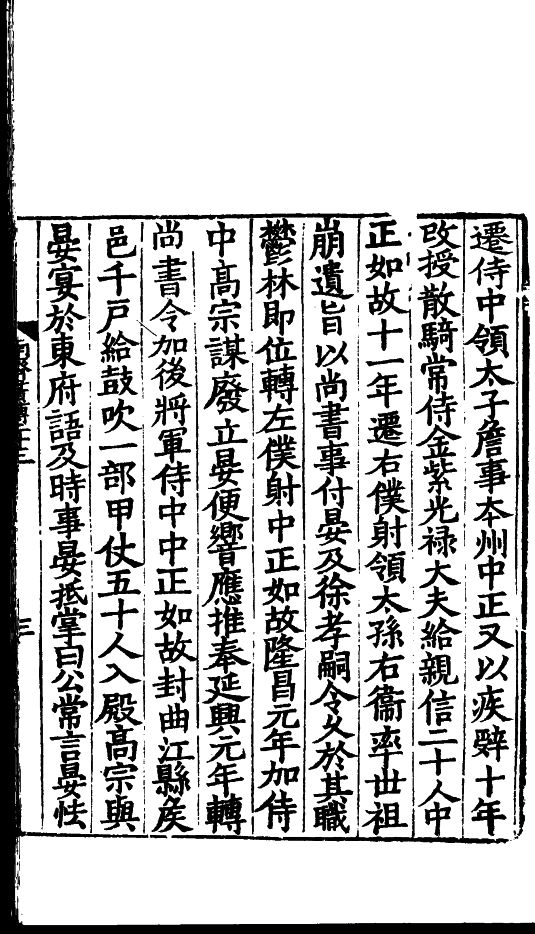 遷侍中領太子詹事本州中正又以疾辤十年
攺授散騎常侍金紫光禄大夫給親信二十人中
正如故十一年遷右僕射領太孫右衞率世祖
崩遺旨以尚書事付晏及徐孝嗣令乆於其職
鬱林即位轉左僕射中正如故隆昌元年加侍
中髙宗謀廢立晏便響應推奉延興元年轉
尚書令加後將軍侍中中正如故封曲江縣矦
邑千戸給鼓吹一部甲仗五十人入殿髙宗與
晏宴於東府語及時事晏抵掌曰公常言晏怯
三